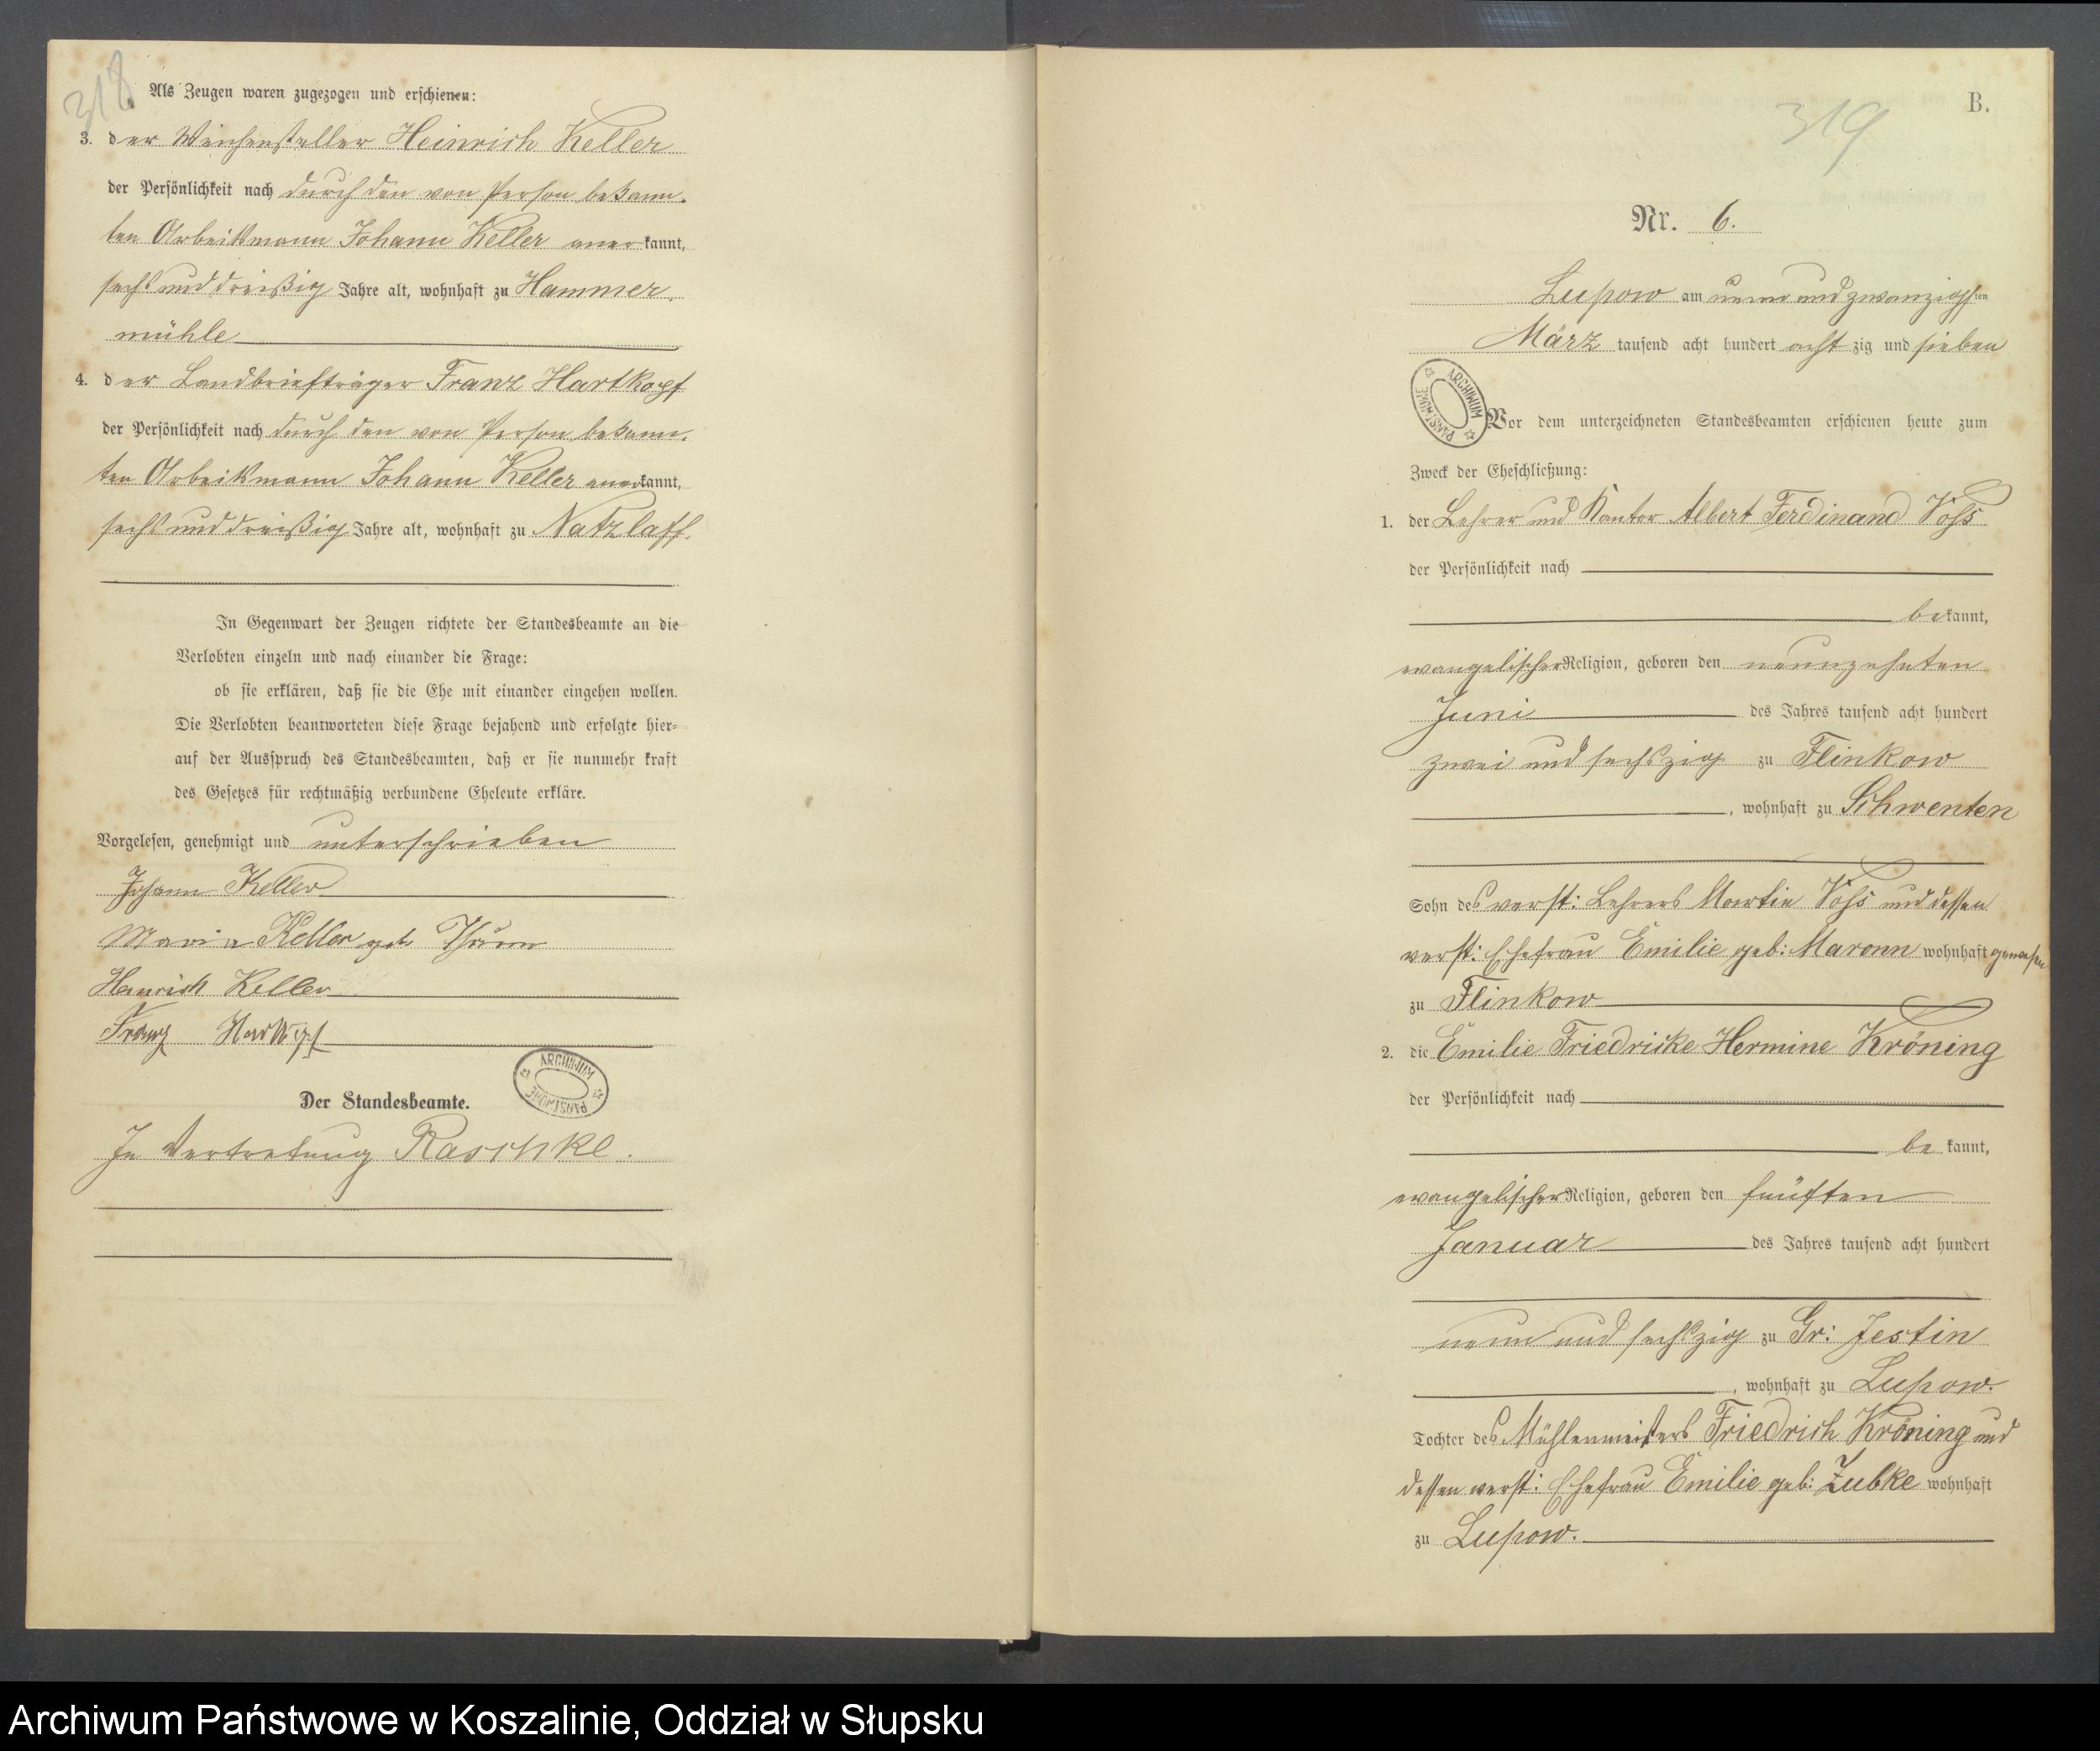 318.
Als Zeugen waren zugezogen und erschienen:
3. der Weichensteller Heinrich Keller
der Persönlichkeit nach durch den von Person bekann-
ten Arbeitsmann Johann Keller anerkannt,
sechs und dreißig Jahre alt, wohnhaft zu Hammer-
mühle
4. der Landbriefträger Franz Hartkopf
der Persönlichkeit nach durch den von Person bekann-
ten Arbeitsmann Johann Keller anerkannt,
sechs und dreißig Jahre alt, wohnhaft zu Natzlaff.
In Gegenwart der Zeugen richtete der Standesbeamte an die
Verlobten einzeln und nach einander die Frage:
ob sie erklären, daß sie die Ehe mit einander eingehen wollen.
Die Verlobten beantworteten diese Frage bejahend und erfolgte hier-
auf der Ausspruch des Standesbeamten, daß er sie nunmehr kraft
des Gesetzes für rechtmäßig verbundene Eheleute erkläre.
Vorgelesen, genehmigt und unterschrieben
Johann Keller
Maria Keller geb
Heinrich Keller
Franz Hartkopf
ARCHIWUM PAŃSTWOWE
Der Standesbeamte.
In Vertretung Raschke.
B.
319
Nr. 6.
Lupow am neun und zwanzigsten
März tausend acht hundert acht zig und sieben
ARCHIWUM PAŃSTWOWE
Vor dem unterzeichneten Standesbeamten erschienen heute zum
Zweck der Eheschließung:
1. der Lehrer und Kantor Albert Ferdinand Voß
der Persönlichkeit nach
bekannt,
evangelischer Religion, geboren den neunzehnten
Juni des Jahres tausend acht hundert
zwei und sechszig zu Flinkow
, wohnhaft zu Schwenten
Sohn des verst: Lehrers Martin Voß und dessen
verst: Ehefrau Emilie geb: Maronn wohnhaft gewesen
zu Flinkow
2. die Emilie Friedricke Hermine Kröning
der Persönlichkeit nach
be kannt,
evangelischer Religion, geboren den fünften
Januar des Jahres tausend acht hundert
neun und sechszig zu Gr: Jestin
, wohnhaft zu Lupow.
Tochter des Mühlenmeisters Friedrich Kröning und
dessen verst: Ehefrau Emilie geb: Zubke wohnhaft
zu Lupow.
Archiwum Państwowe w Koszalinie, Oddział w Słupsku